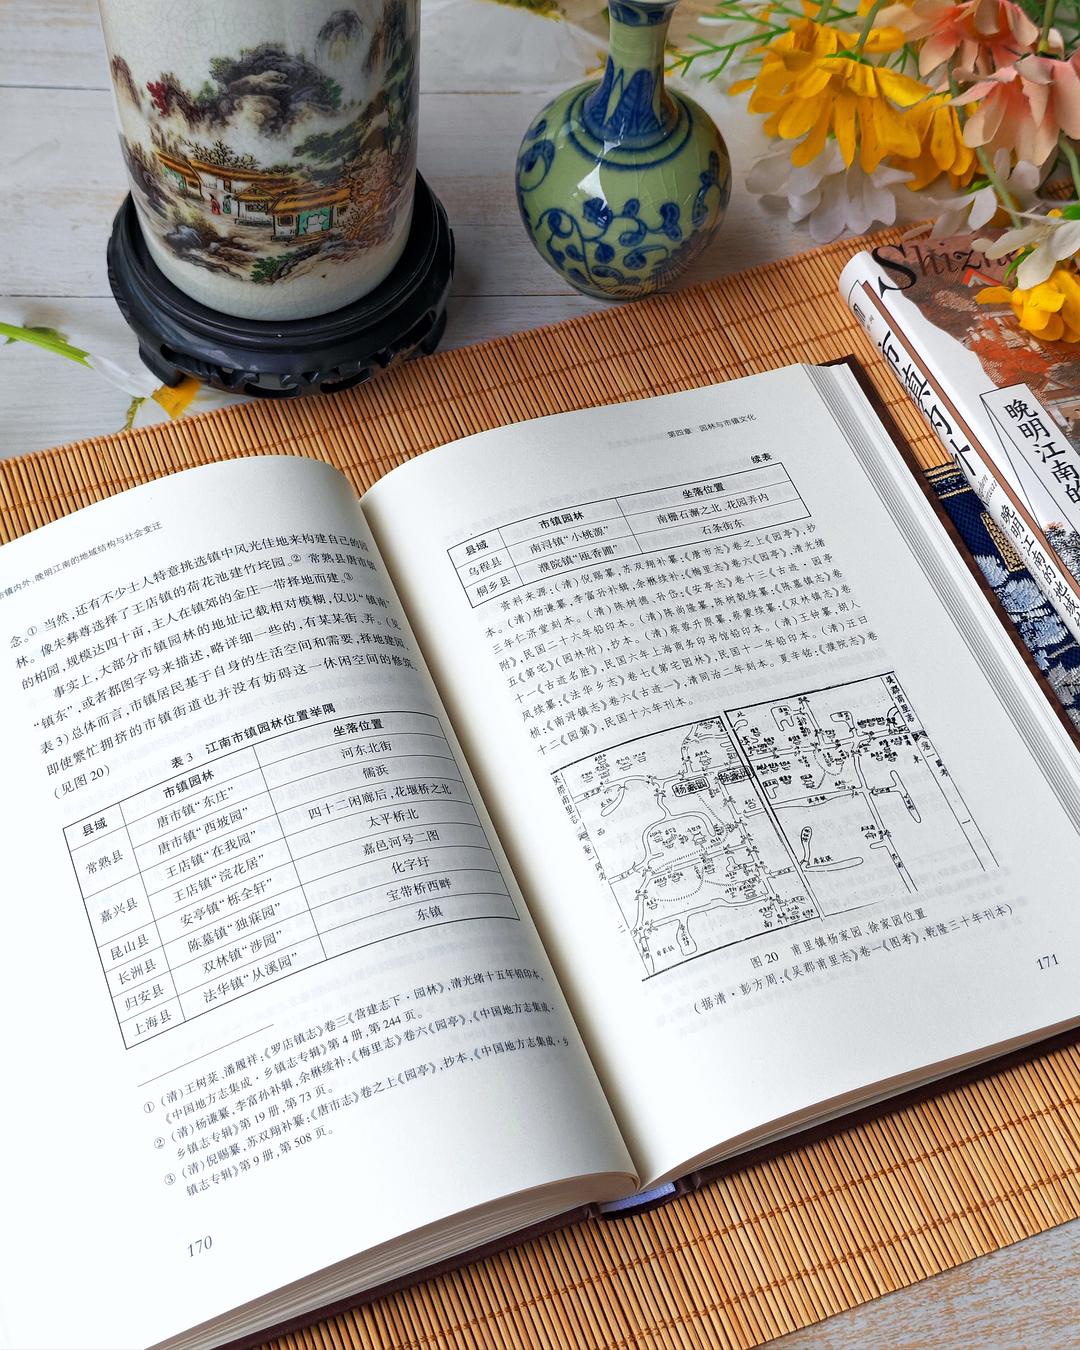 市镇内外:晚明江南的地域结构与社会变迁
念。① 当然,还有不少士人特意挑选镇中风光佳地来构建自己的园
林。像朱彝尊选择了王店镇的荷花池建竹垞园。② 常熟县唐市镇
的柏园,规模达四十亩,主人在镇郊的金庄一带择地而建。③
事实上,大部分市镇园林的地址记载相对模糊,仅以“镇南”
“镇东”,或者都图字号来描述,略详细一些的,有某某街、弄。(见
表3)总体而言,市镇居民基于自身的生活空间和需要,择地建园,
即使繁忙拥挤的市镇街道也并没有妨碍这一休闲空间的修筑。
(见图20)
表3 江南市镇园林位置举隅
县域 市镇园林 坐落位置
常熟县 唐市镇“东庄” 河东北街
唐市镇“西坡园” 儒浜
嘉兴县 王店镇“在我园” 四十二闲廊后,花堰桥之北
王店镇“浣花居” 太平桥北
昆山县 安亭镇“栎全轩” 嘉邑河号二图
长洲县 陈墓镇“独寐园” 化字圩
归安县 双林镇“涉园” 宝带桥西畔
上海县 法华镇“从溪园” 东镇
① (清)王树棻、潘履祥:《罗店镇志》卷三《营建志下·园林》,清光绪十五年铅印本,
《中国地方志集成·乡镇志专辑》第4册,第244页。
② (清)杨谦纂,李富孙补辑,余楙续补:《梅里志》卷六《园亭》,《中国地方志集成·
乡镇志专辑》第19册,第73页。
③ (清)倪赐纂,苏双翔补纂:《唐市志》卷之上《园亭》,抄本,《中国地方志集成·乡
镇志专辑》第9册,第508页。
170
第四章 园林与市镇文化
续表
县域 市镇园林 坐落位置
乌程县 南浔镇“小桃源” 南栅石灏之北,花园弄内
桐乡县 濮院镇“瓯香圃” 石条街东
资料来源:(清)倪赐纂,苏双翔补纂:《唐市志》卷之上《园亭》,抄
本。(清)杨谦纂,李富孙补辑,余楙续补:《梅里志》卷六《园亭》,清光绪
三年仁济堂刻本。(清)陈树德、孙岱:《安亭志》卷十三《古迹·园亭
附》,民国二十六年铅印本。(清)陈尚隆纂,陈树榖续纂:《陈墓镇志》卷
五《第宅》(《园林附》),抄本。(清)蔡蓉升原纂,蔡蒙续纂:《双林镇志》卷
十一《古迹名胜》,民国六年上海商务印书馆铅印本。(清)王钟纂,胡人
凤续纂:《法华乡志》卷七《第宅园林》,民国十一年铅印本。(清)汪曰
桢:《南浔镇志》卷六《古迹一》,清同治二年刻本。夏辛铭:《濮院志》卷
十二《园第》,民国十六年刊本。
吴郡甫里志
杨家园
徐家园
图20 甫里镇杨家园、徐家园位置
(据清·彭方周:《吴郡甫里志》卷一《图考》,乾隆三十年刊本)
171
市镇内外
晚明江南的地域
晚明江南的